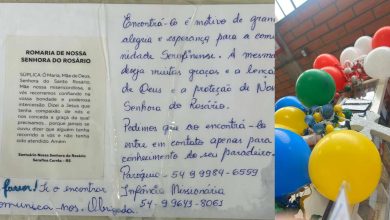 ROMARIA DE NOSSA
SENHORA DO ROSÁRIO
SÚPLICA: Ó Maria, Mãe de Deus,
Senhora do Santo Rosário,
Mãe nossa misericordiosa, a
vós recorremos confiando na
vossa bondade e poderosa
intercessão. Dizei a Jesus que
tenha compaixão de nós e
nos conceda a graça de que
precisamos, porque jamais se
ouviu dizer que alguém tenha
recorrido a vós e não tenha
sido atendido. Amém
Santuário Nossa Senhora do Rosário
Serafina Corrêa - RS
Favor! Se o encontrar
comunica-nos. Obrigada
Encontrá-lo é motivo de grande
alegria e esperança para a comu
nidade Serafinense. A mesma
deseja muitas graças e a benção
de Deus e a proteção de Nossa
Senhora do Rosário.
Pedimos que ao encontrá-lo
entre em contato apenas para
conhecimento do seu paradeiro.
Paróquia - 54 9 9984-6559
Infância Missionária
54-9 9643-8061